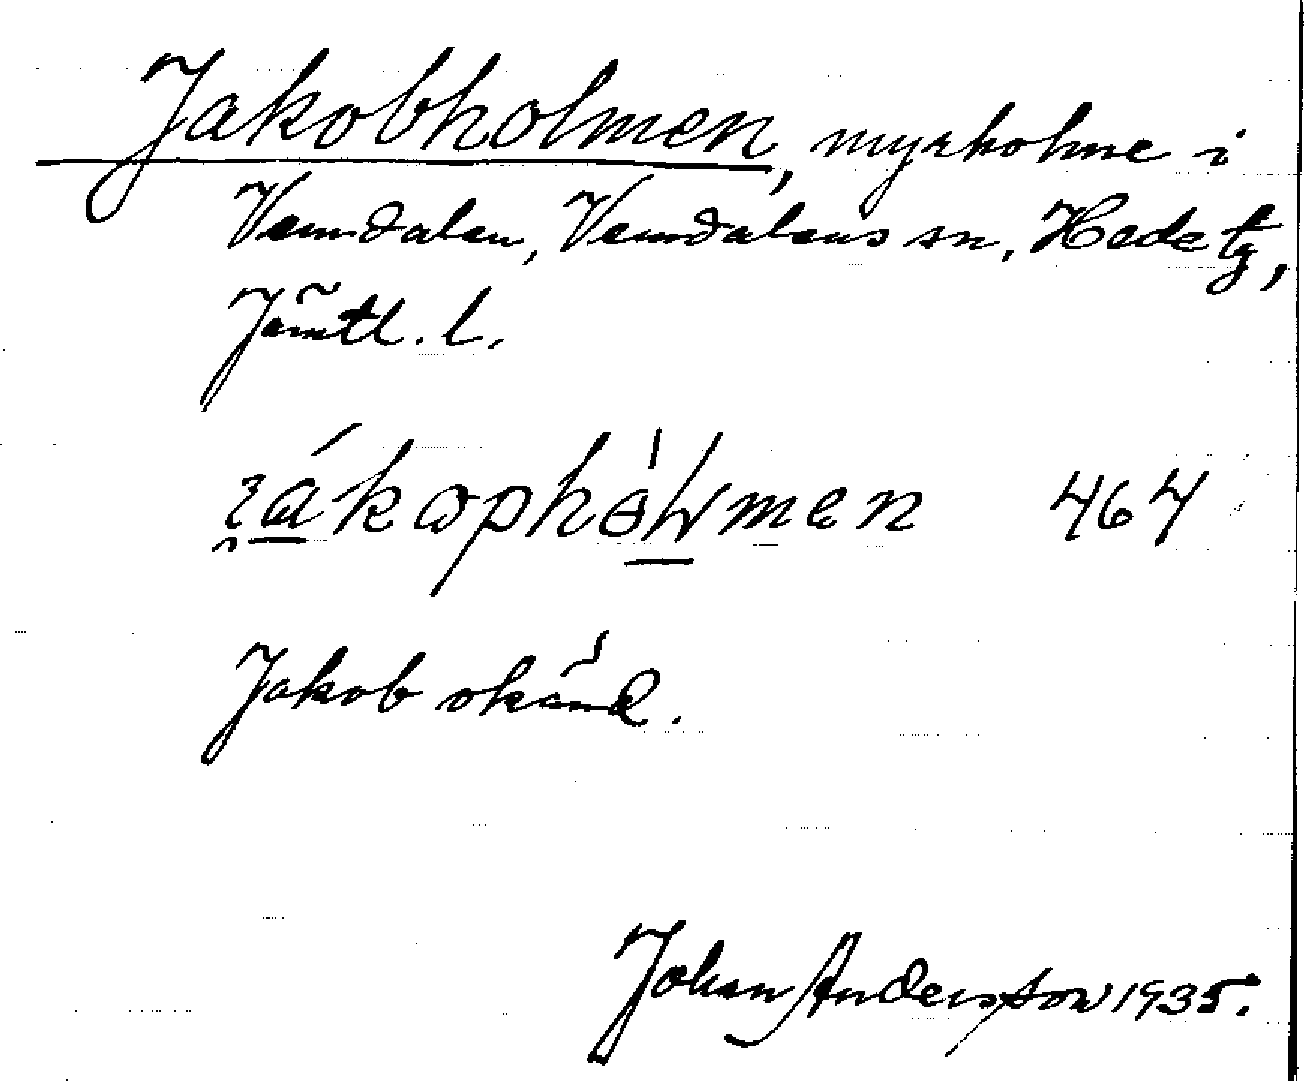 Jakobholmen, myrholme i
Vemdalen, Vemdalens sn, Hede tg,
Jämtl. l.
464
Jakob okänd.
Johan Andersson 1935.